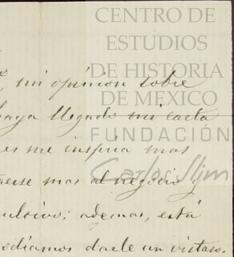 CENTRO DE
ESTUDIOS
DE HISTORIA
DE MÉXICO
FUNDACIÓN
Carlos Slim
mi opinión sobre
haya llegado mi carta
es me inspira mas
mas al negocio
ademas, está
darle un vistazo.